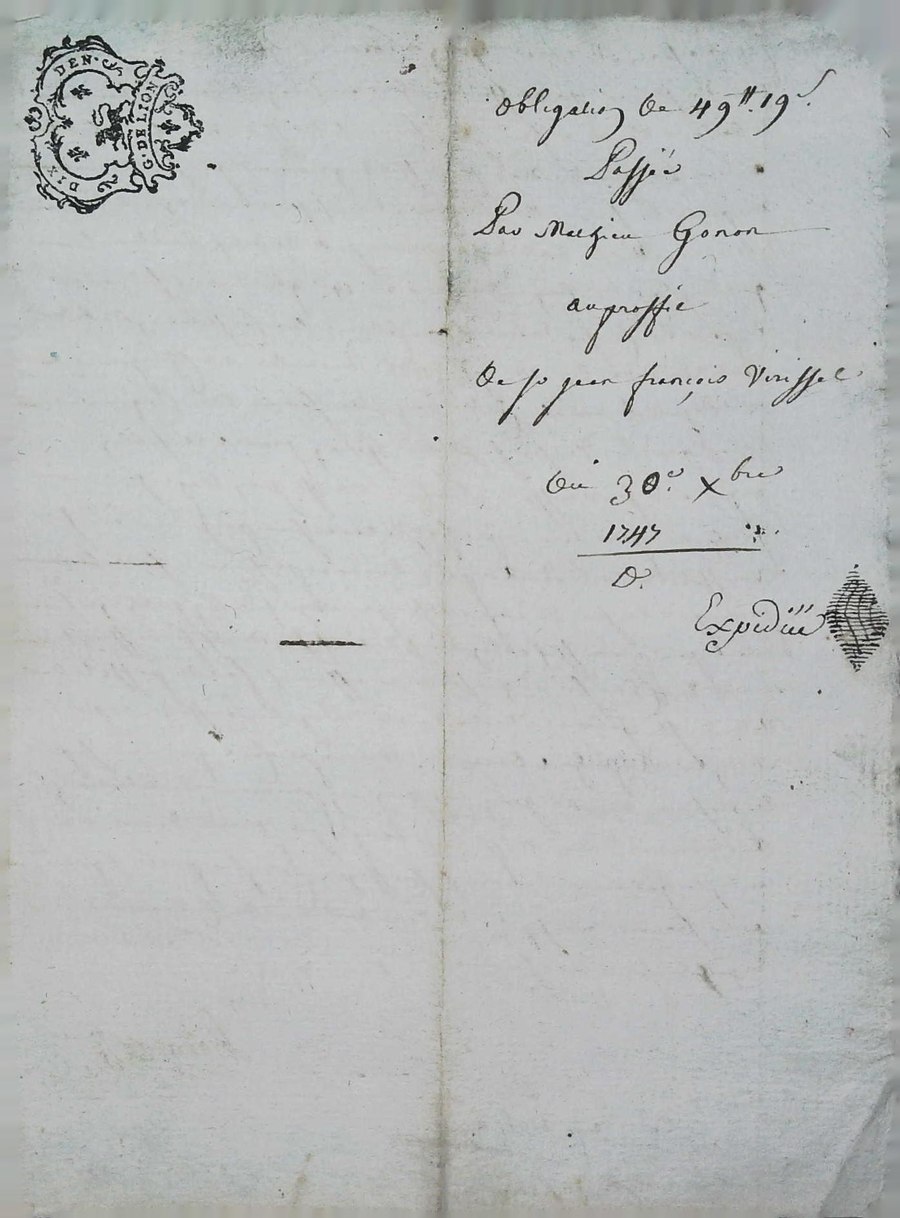 DIX DEN.
G. DE LION
obligation de 49ᵗᵗ 19ˢ.
Passée
Par Mathieu Gonon
au proffit
De sʳ jean françois Virissel
Du 30ᵉ. Xbre
1747
D.
Expediée